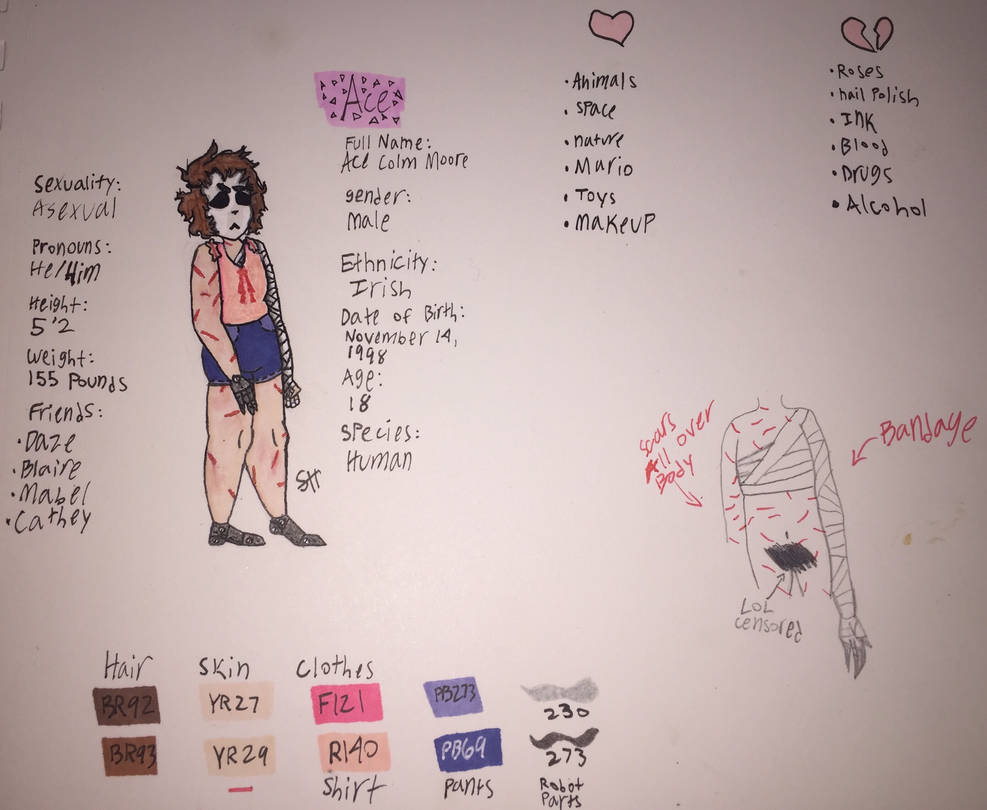 Sexuality:
Asexual
Pronouns:
He/Him
Height:
5'2
Weight:
155 Pounds
Friends:
• Daze
• Blaire
• Mabel
• Cathey
Ace
Full Name:
Ace Colm Moore
gender:
Male
Ethnicity:
Irish
Date of Birth:
November 14,
1998
Age:
18
Species:
Human
• Animals
• Space
• nature
• Mario
• Toys
• Makeup
• Roses
• nail Polish
• Ink
• Blood
• Drugs
• Alcohol
Scars
All over
Body
Bandage
LOL
censored
Hair
Skin
Clothes
BR92
YR27
F121
PB273
230
BR93
YR29
R140
PB69
273
Shirt
Pants
Robot
Parts